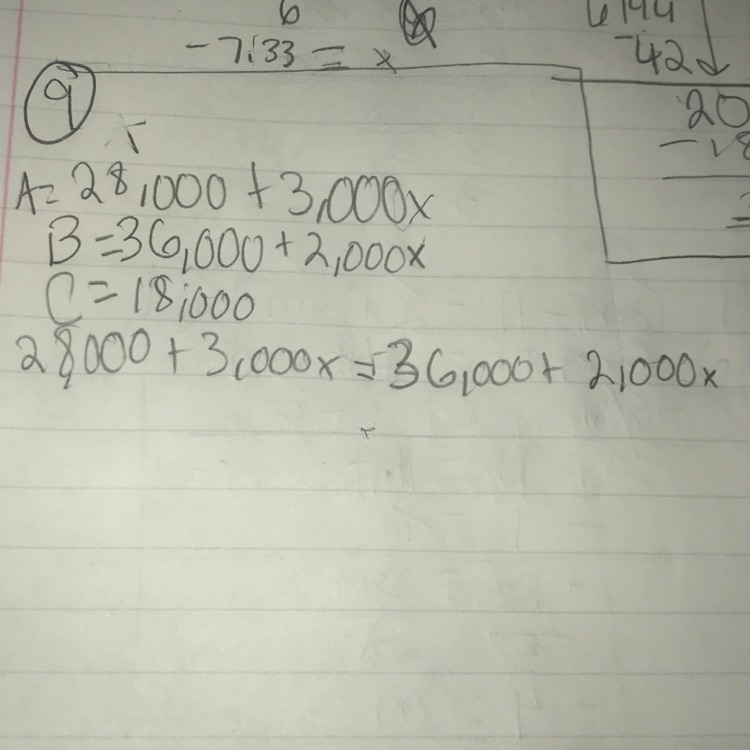 6
- 7.33 = x
6 144
-42↓
20
- 18
9
A= 28,000 + 3,000x
B = 36,000 + 2,000x
C = 18,000
28,000 + 3,000x = 36,000 + 2,000x